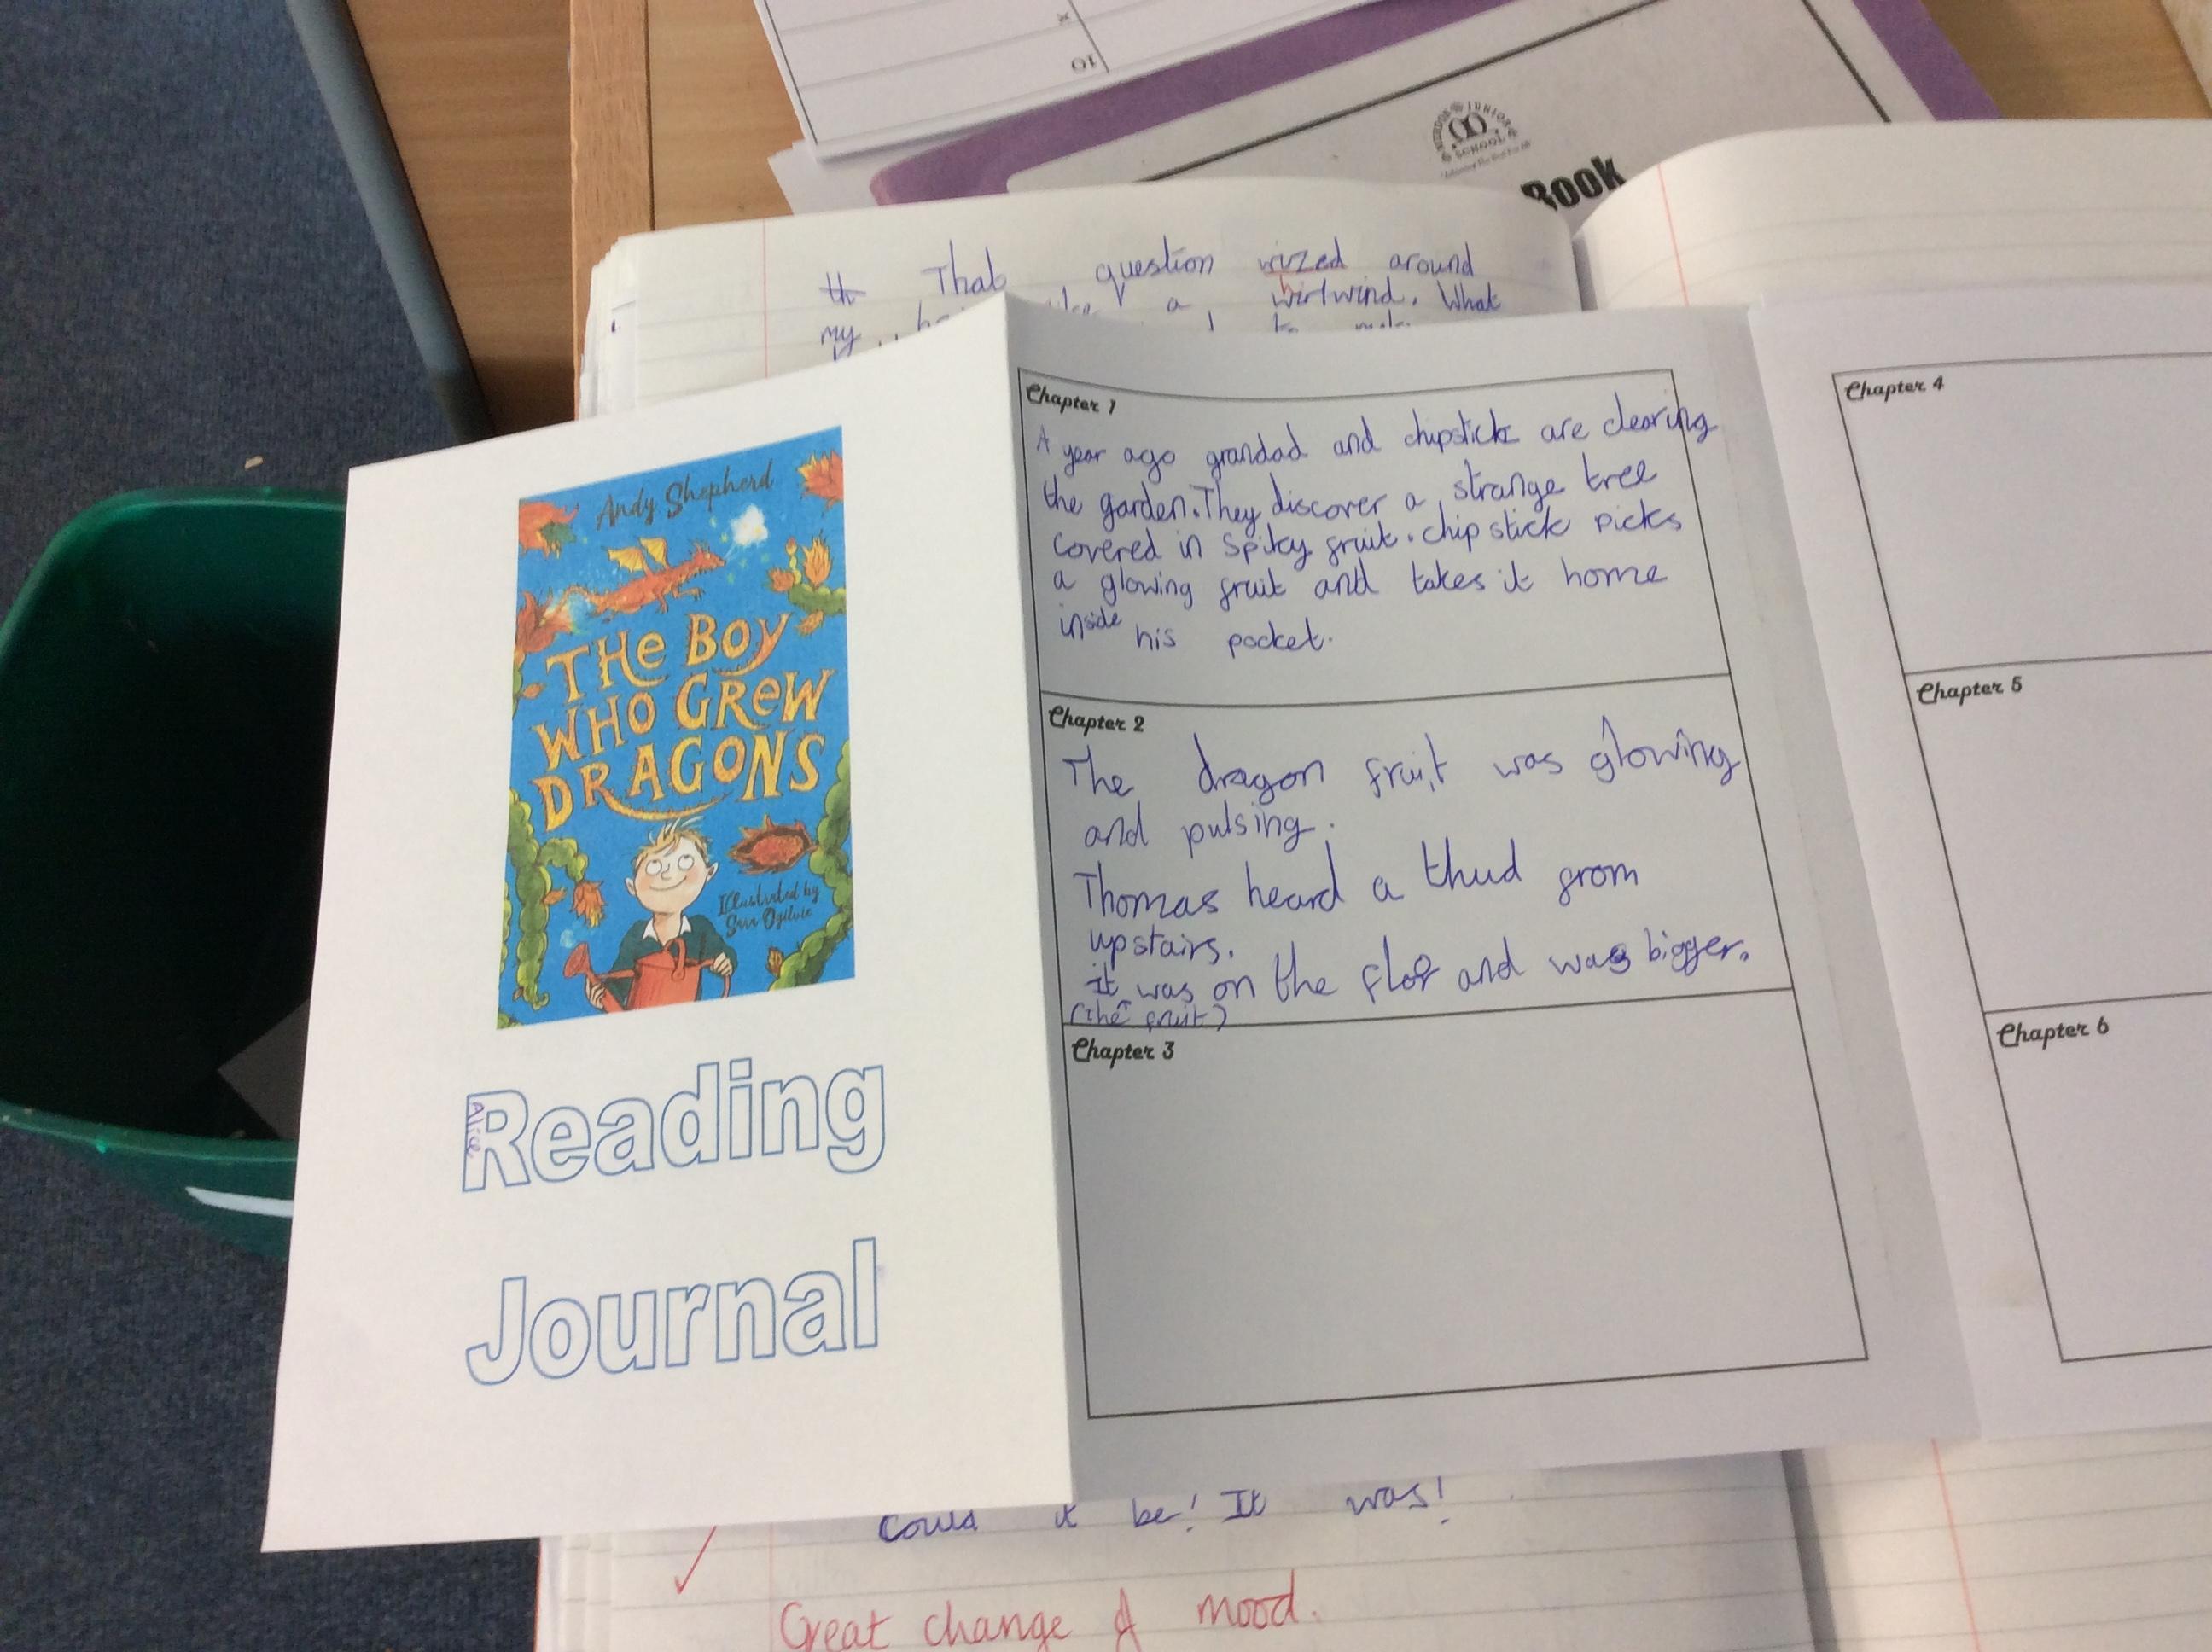 x
10
JUNIOR
SCHOOL
Book
th That question wized around
my a wirlwind. What
Chapter 1
A year ago grandad and chipstick are clearing
the garden. They discover a strange tree
covered in spiky fruit. chip stick picks
a glowing fruit and takes it home
inside his pocket.
Chapter 2
The dragon fruit was glowing
and pulsing.
Thomas heard a thud from
upstairs.
It was on the flor and was bigger.
(The fruit)
Chapter 3
Chapter 4
Chapter 5
Chapter 6
Andy Shepherd
THE BOY
WHO GREW
DRAGONS
Illustrated by
Sara Ogilvie
Alice
Reading
Journal
could it be! It was!
Great change of mood.